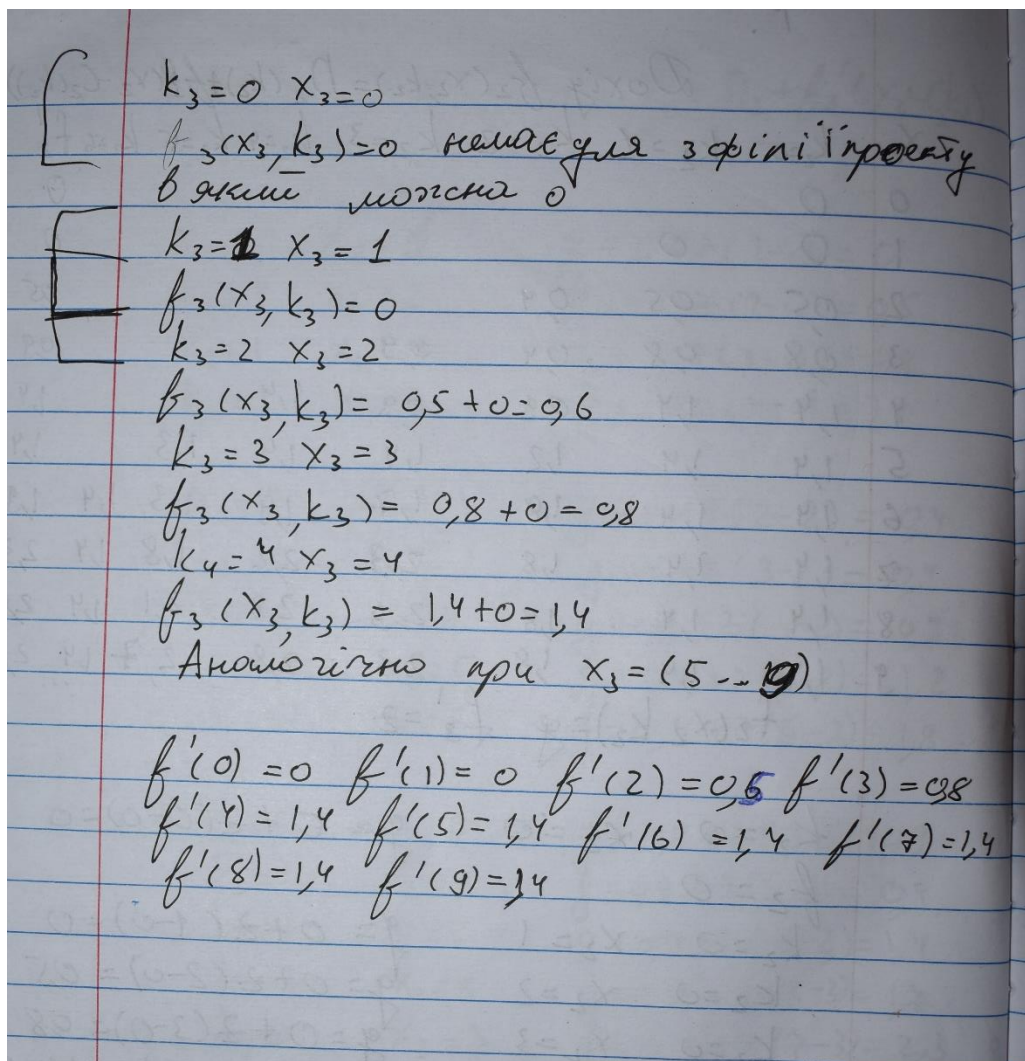 k₃=0 x₃=0
f₃(x₃,k₃)=0 немає для 3 філії проєкту
в який можна 0
k₃=1 x₃=1
f₃(x₃,k₃)=0
k₃=2 x₃=2
f₃(x₃,k₃)= 0,5+0=0,6
k₃=3 x₃=3
f₃(x₃,k₃)= 0,8+0=0,8
k₄=4 x₃=4
f₃(x₃,k₃) = 1,4+0=1,4
Аналогічно при x₃=(5...9)
f'(0)=0 f'(1)=0 f'(2)=0,5 f'(3)=0,8
f'(4)=1,4 f'(5)=1,4 f'(6)=1,4 f'(7)=1,4
f'(8)=1,4 f'(9)=1,4